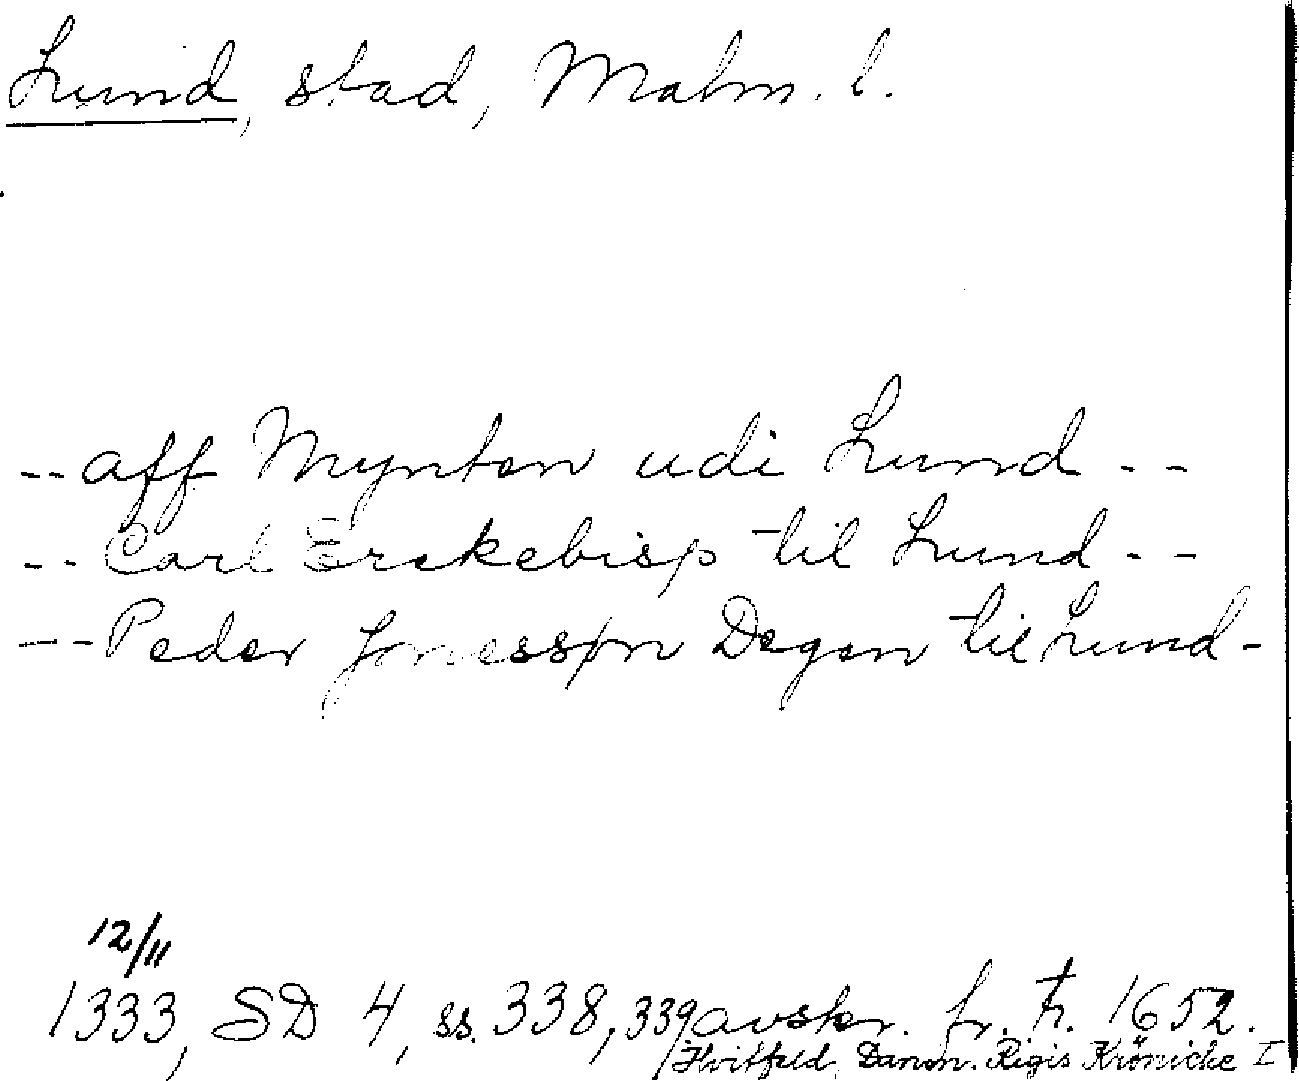 Lund, stad, Malm. l.
-- aff Mynten udi Lund --
-- Carl Erckebisp til Lund --
-- Peder Jonessøn Degen til Lund -
12/11
1333, SD 4, ss. 338, 339 avskr. fr. tr. 1652.
Hvitfeld, Danm. Rigis Krönicke I